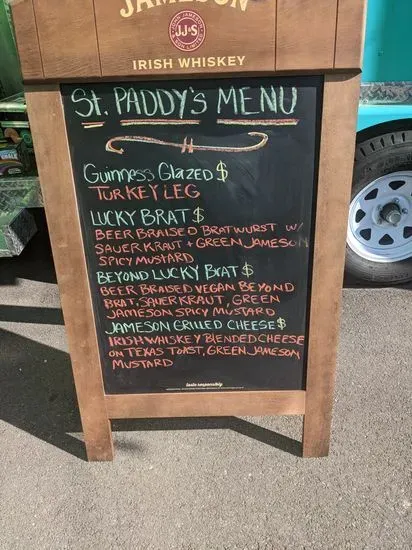 JAMESON
JOHN JAMESON
JJ&S
& SON LIMITED
IRISH WHISKEY
St. PADDY'S MENU
Guinness Glazed $
TURKEY LEG
LUCKY BRAT $
BEER BRAISED BRATWURST W/
SAUERKRAUT + GREEN JAMESON
SPICY MUSTARD
BEYOND LUCKY BRAT $
BEER BRAISED VEGAN BEYOND
BRAT, SAUERKRAUT, GREEN
JAMESON SPICY MUSTARD
JAMESON GRILLED CHEESE $
IRISH WHISKEY BLENDED CHEESE
ON TEXAS TOAST, GREEN JAMESON
MUSTARD
taste responsibly